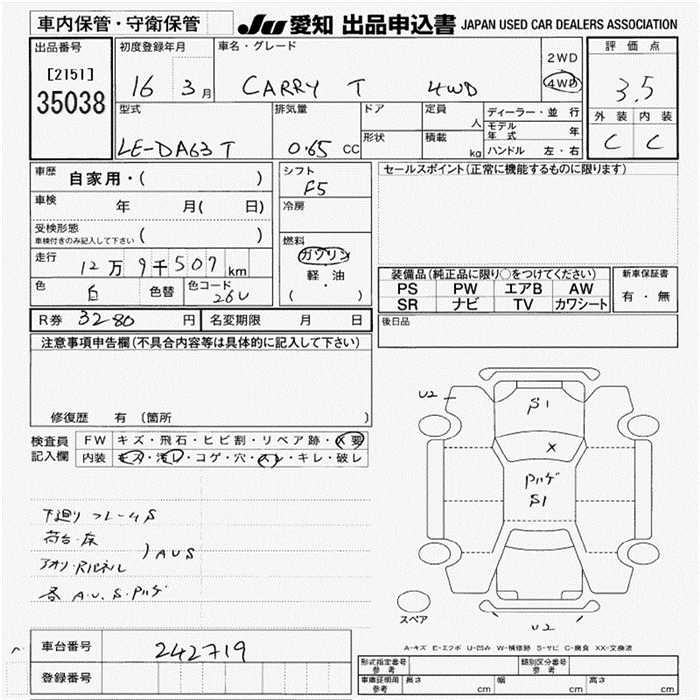 車内保管・守衛保管
JU 愛知 出品申込書 JAPAN USED CAR DEALERS ASSOCIATION
出品番号
[2151]
35038
初度登録年月
16 3月
車名・グレード
CARRY T 4WD
2WD
4WD
評価点
3.5
外装 内装
C C
型式
LE-DA63T
排気量
0.65 CC
ドア
形状
定員
人
積載
kg
ディーラー・並行
モデル年式 年
ハンドル 左・右
車歴
自家用・( )
車検
年 月( 日)
受検形態
車検付きのみ記入して下さい ( )
走行
12万9千507km
色
白
色替
色コード
26U
シフト
F5
冷房
燃料
ガソリン
軽・油
( )
セールスポイント(正常に機能するものに限ります)
装備品(純正品に限り○をつけてください)
PS PW エアB AW
SR ナビ TV カワシート
新車保証書
有・無
後日品
R券 3280 円
名変期限 月 日
注意事項申告欄(不具合内容等は具体的に記入して下さい)
修復歴 有(箇所 )
検査員記入欄
FW キズ・飛石・ヒビ割・リペア跡・X要
内装 キズ・汚レ・コゲ・穴・スレ・キレ・破レ
下廻り フレームS
荷台・床
アオリ・Rパネル
) AUS
各 A.U.S.Pハゲ
U2
S1
X
Pハゲ
S1
U2
スペア
A-キズ E-エクボ U-凹み W-補修跡 S-サビ C-腐食 XX-交換済
車台番号
242719
登録番号
型式指定番号 参考
類別区分番号 参考
車庫証明用 参考
長さ cm
幅 cm
高さ cm